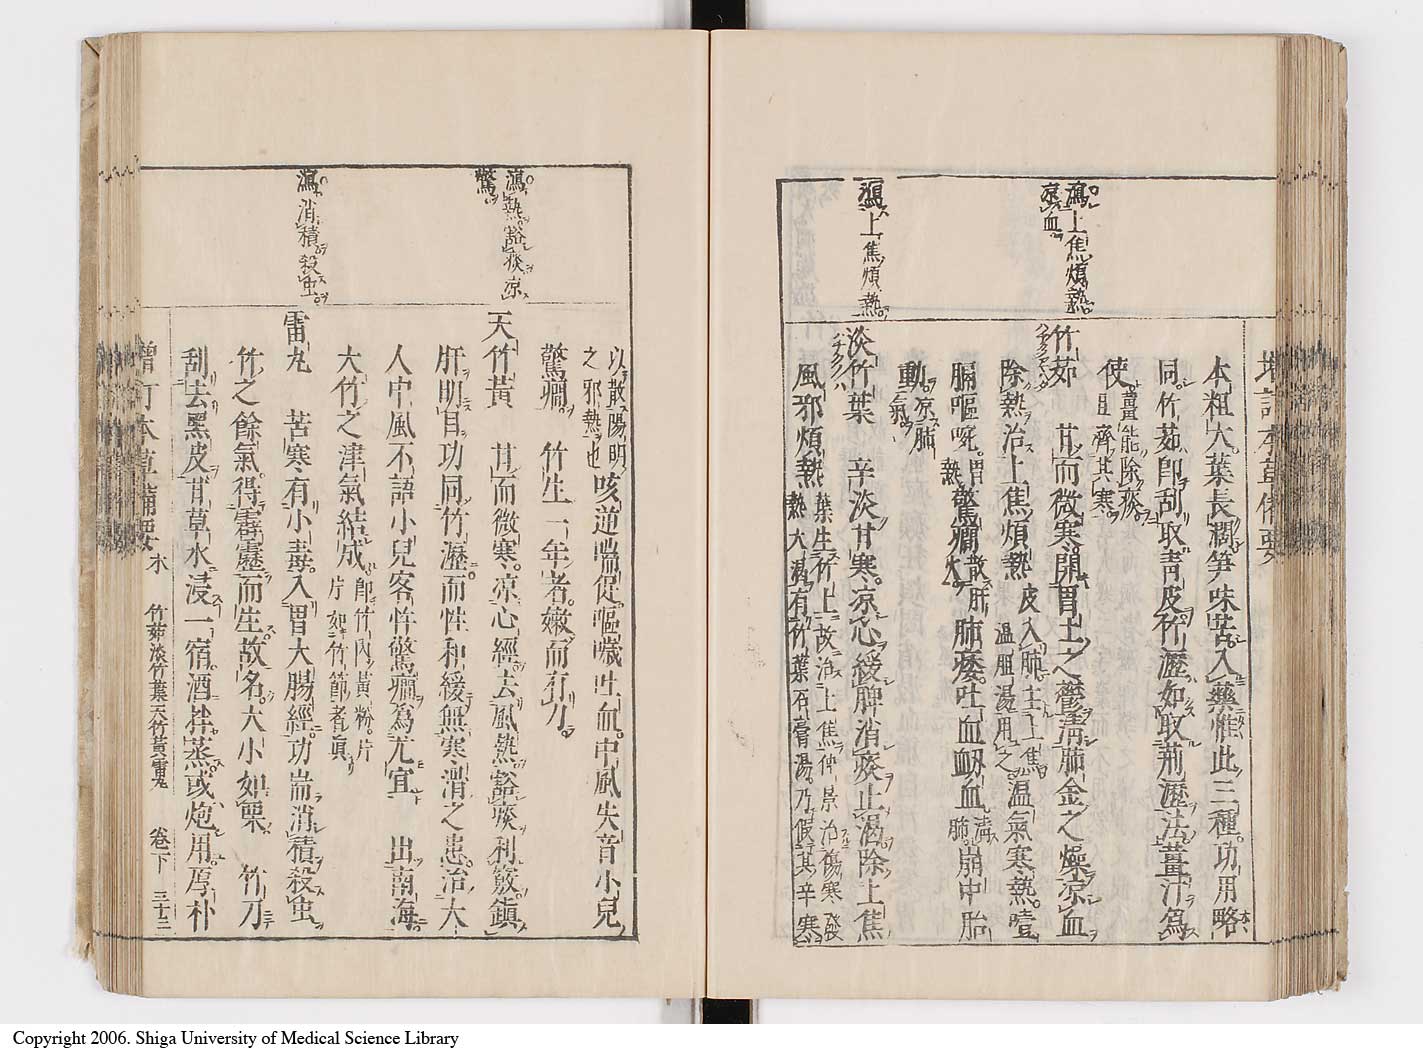 增訂本草備要
本粗大葉長濶笋味苦入藥惟此三種功用略
同竹茹即刮取青皮竹瀝如取荊瀝法薑汁爲
使薑能除痰
且齊其寒
瀉上焦煩熱
凉血
竹茹 甘而微寒開胃土之鬱淸肺金之燥凉血
除熱治上焦煩熱皮入肺主上焦
温胆湯用之温氣寒熱噎
膈嘔啘胃
熱驚癇散肝
火肺痿吐血衂血淸
肺崩中胎
動凉肺
氣
瀉上焦煩熱
淡竹葉 辛淡甘寒凉心緩脾消痰止渴除上焦
風邪煩熱葉生竹上故治上焦仲景治傷寒發
熱大渴有竹葉石膏湯乃假其辛寒
以散陽明
之邪熱也咳逆喘促嘔噦吐血中風失音小兒
驚癇 竹生一年者嫩而有力
瀉熱豁痰凉
驚
天竹黃 甘而微寒凉心經去風熱豁痰利竅鎮
肝明目功同竹瀝而性和緩無寒滑之患治大
人中風不語小兒客忤驚癇爲尤宜 出南海
大竹之津氣結成即竹內黃粉片
片如竹節者眞
瀉消積殺虫
雷丸 苦寒有小毒入胃大腸經功耑消積殺虫
竹之餘氣得霹靂而生故名大小如栗 竹刀
刮去黑皮甘草水浸一宿酒拌蒸或炮用厚朴
增訂本草備要 木 竹茹淡竹葉天竹黃雷丸 卷下 三十二
Copyright 2006. Shiga University of Medical Science Library